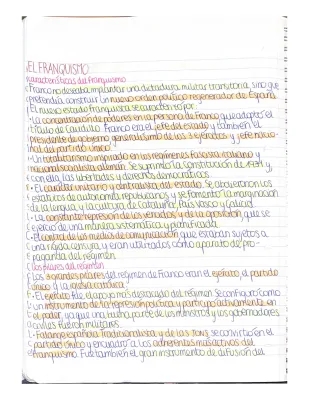 EL FRANQUISMO
Características del franquismo
Franco no deseaba implantar una dictadura militar transitoria, sino que
pretendía construir un nuevo orden político regenerador de España.
El nuevo estado franquista se caracterizó por:
· La concentración de poderes en la persona de Franco que adoptó el
título de Caudillo. Franco era el jefe del estado y también el
presidente de gobierno generalísimo de los 3 ejércitos y jefe nacio-
nal del partido único.
· Un totalitarismo inspirado en los regímenes fascista italiano y
nacionalsocialista alemán. Se suprimió la Constitución de 1931 y
con ella, las libertades y derechos democráticos.
· El carácter unitario y centralista del estado. Se abolieron los
estatutos de autonomía republicanos y se fomentó la marginación
de la lengua y la cultura de Cataluña, País Vasco y Galicia.
· La constante represión de los vencidos y de la oposición, que se
ejerció de una manera sistemática y planificada.
· El control de los medios de comunicación que estaban sujetos a
una rígida censura, y eran utilizados como aparato de pro-
paganda del régimen.
Los pilares del régimen
Los 3 grandes pilares del régimen de Franco eran el ejército, el partido
único y la iglesia católica.
· El ejército fue el apoyo más destacado del régimen. Se configuró como
un instrumento de la represión política y participó activamente en
el poder, ya que una buena parte de los ministros y los gobernadores
civiles fueron militares.
· Falange española Tradicionalista y de las JONS se convirtió en el
partido único y encuadró a los adherentes más activos del
franquismo. Fue también el gran instrumento de difusión del